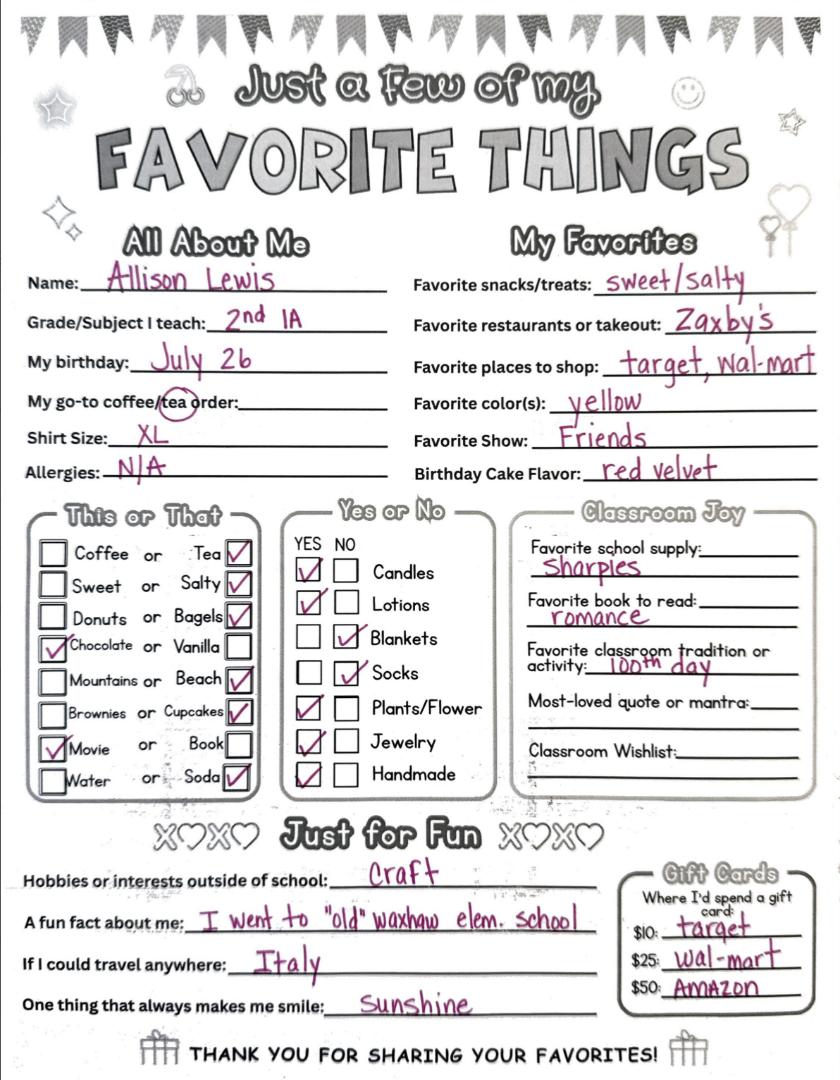 Just a Few of my
FAVORITE THINGS
All About Me
Name: Allison Lewis
Grade/Subject I teach: 2nd IA
My birthday: July 26
My go-to coffee/tea order:
Shirt Size: XL
Allergies: N/A
My Favorites
Favorite snacks/treats: sweet/salty
Favorite restaurants or takeout: Zaxby's
Favorite places to shop: target, Wal-mart
Favorite color(s): yellow
Favorite Show: Friends
Birthday Cake Flavor: red velvet
This or That
Coffee or Tea
Sweet or Salty
Donuts or Bagels
Chocolate or Vanilla
Mountains or Beach
Brownies or Cupcakes
Movie or Book
Water or Soda
Yes or No
YES NO
Candles
Lotions
Blankets
Socks
Plants/Flower
Jewelry
Handmade
Classroom Joy
Favorite school supply:
sharpies
Favorite book to read:
romance
Favorite classroom tradition or
activity: 100th day
Most-loved quote or mantra:
Classroom Wishlist:
XOXO Just for Fun XOXO
Hobbies or interests outside of school: craft
A fun fact about me: I went to "old" waxhaw elem. school
If I could travel anywhere: Italy
One thing that always makes me smile: sunshine
Gift Cards
Where I'd spend a gift
card:
$10: target
$25: Wal-mart
$50: AMAZON
THANK YOU FOR SHARING YOUR FAVORITES!